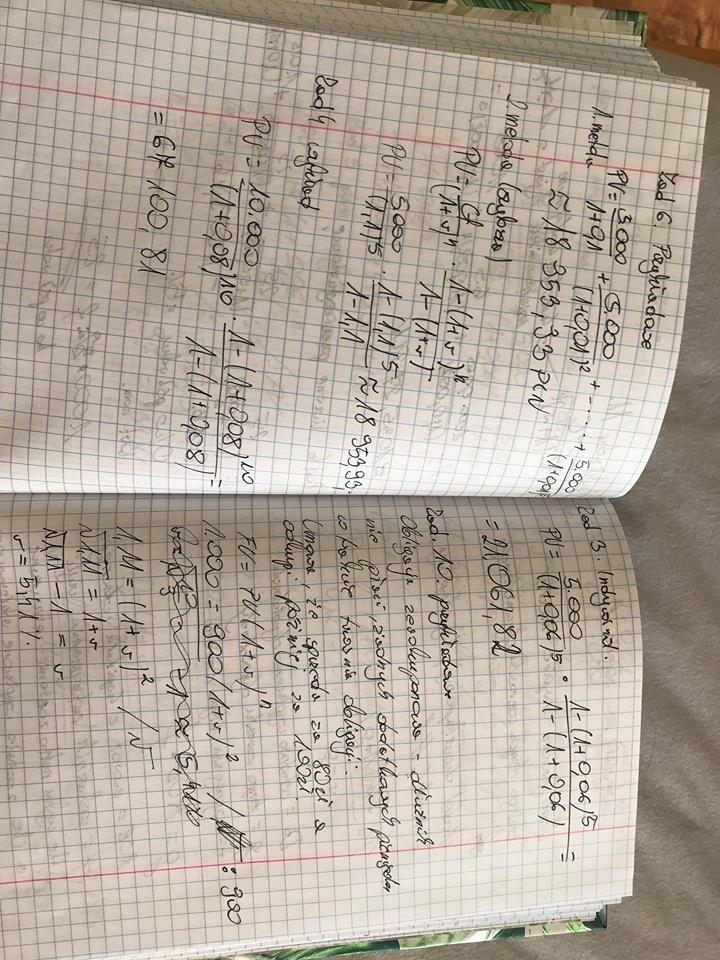 Zad 6. Przykładowe
1. metoda PV = 5.000/1+0,1 + 5.000/(1+0,1)² + ...... + 5.000/(1+0,1)⁵
≈ 18 953,93 PLN
2. metoda (szybsza)
PV = a/(1+r)ⁿ · 1-(1+r)ⁿ/1-(1+r)
PV = 5000/(1,1)⁵ · 1-(1,1)⁵/1-1,1 ≈ 18 953,93.
Zad 4
PV = 10.000/(1+0,08)¹⁰ · 1-(1+0,08)¹⁰/1-(1+0,08) =
= 67 100,81
Zad 3. Indywid.
PV = 5.000/(1+0,06)⁵ · 1-(1+0,06)⁵/1-(1+0,06) =
= 21 061,82
Zad. 10. przykładowe
Obligacja zerokuponowa - dłużnik
nie płaci żadnych dodatkowych pieniędzy
w trakcie trwania obligacji.
Umowa że sprzeda za 80zł a
odkupi później za 100zł.
FV = PV(1+r)ⁿ
1.000 = 900(1+r)² / : 900
1,11 = (1+r)² / √
√1,11 = 1+r
√1,11 - 1 = r
r = 5,41%